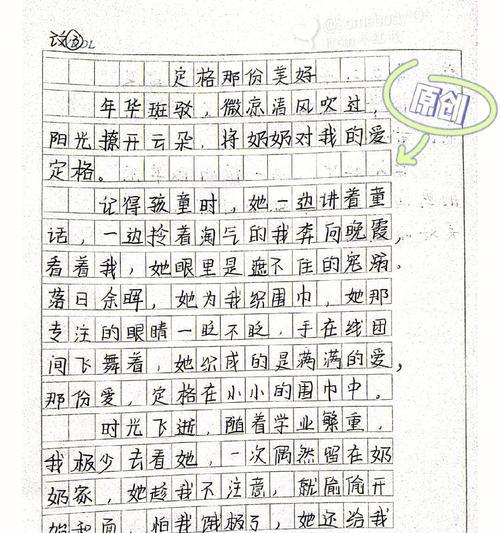 定格那份美好
年华斑驳，微凉清风吹过，
原创
阳光撩开云朵，将奶奶对我的爱
定格。
记得孩童时，她一边讲着童
话，一边拎着淘气的我奔向晚霞，
看着我，她眼里是遮不住的宠溺。
落日余晖，她为我织围巾，她那
专注的眼睛一眨不眨，手在线团
间飞舞着，她织成的是满满的爱，
那份爱，定格在小小的围巾中。
时光飞逝，随着学业繁重，
我极少去看她，一次偶然留在奶
奶家，她趁我不注意，就偷偷开
始和面，怕我饿极了，她还给我